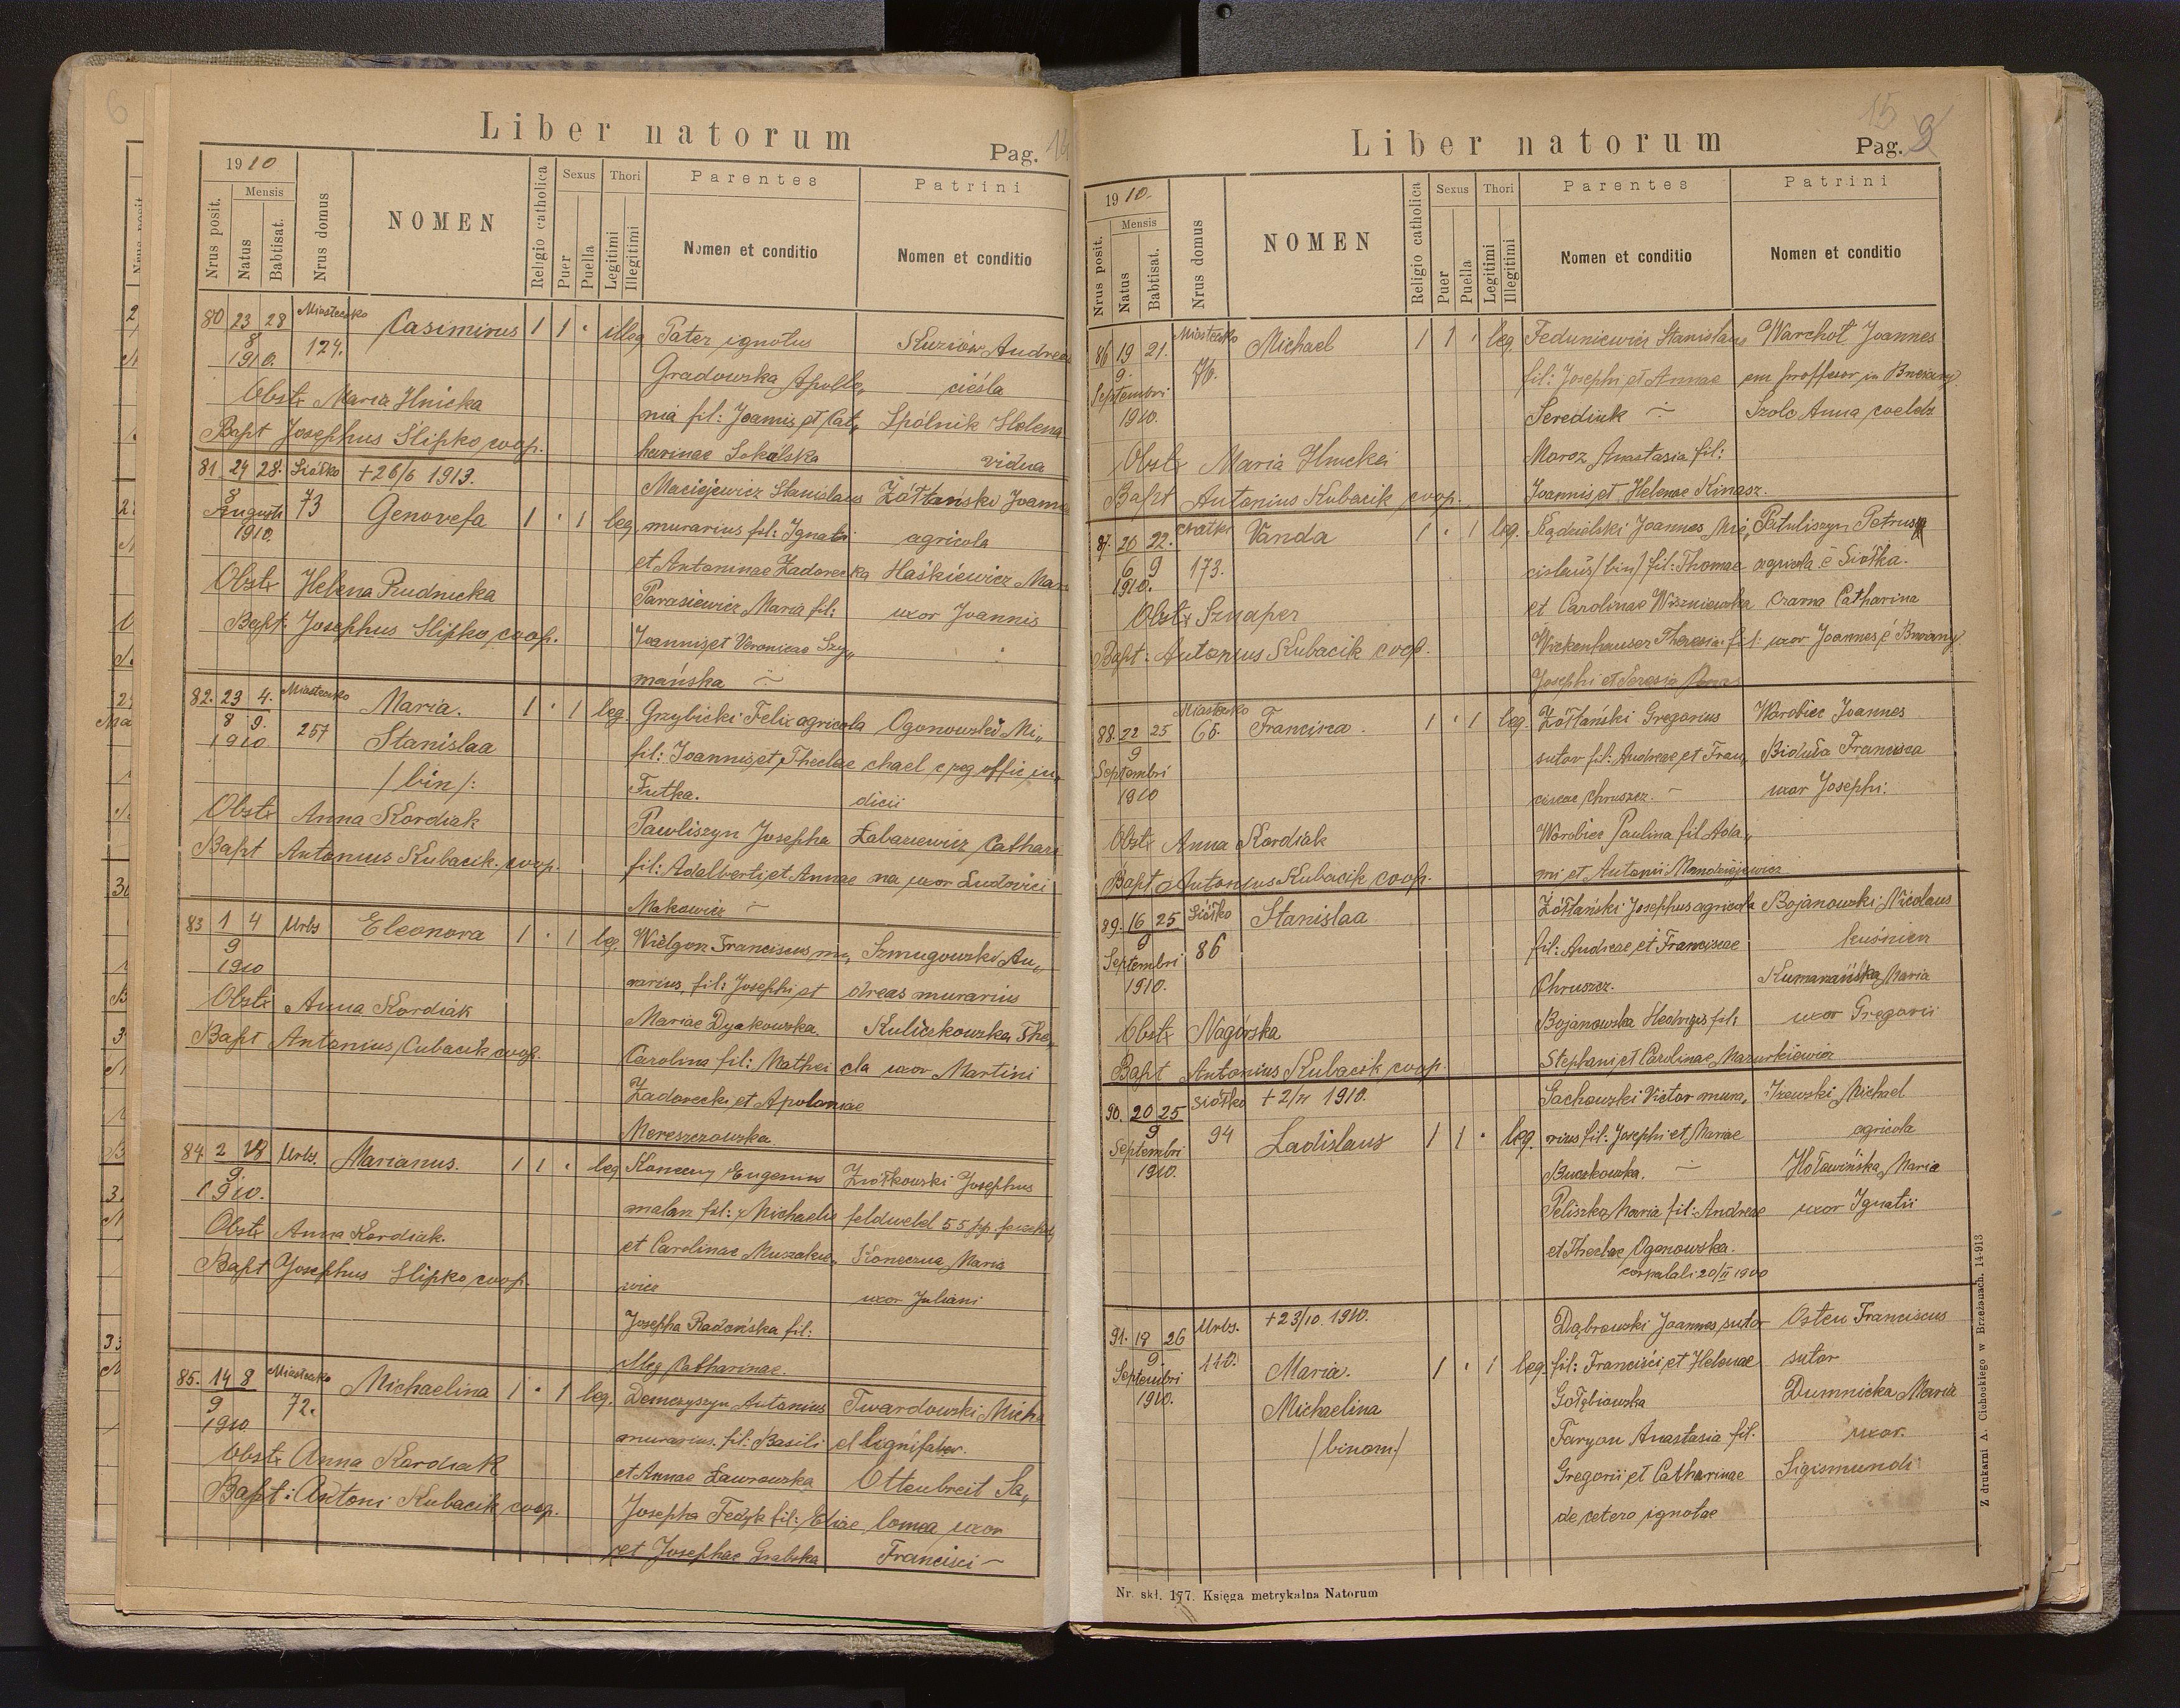 Liber natorum
Pag. 14
1910
Nrus posit.
Mensis
Natus
Babtisat.
Nrus domus
NOMEN
Religio catholica
Sexus
Puer
Puella
Thori
Legitimi
Illegitimi
Parentes
Nomen et conditio
Patrini
Nomen et conditio
80 23 28 Miasteczko Casimirus 1 1 · illeg Pater ignotus
8 1910. 124. Gradowska Apollo„ cieśla
Obstx Maria Hnicka nia fil: Joannis et Cat„ Spólnik Helena
Bapt Josephus Slipko coop. harinae Sokalska vidua
81 24 28. Siółko +26/6 1913. Maciejewicz Stanislaus Żółtański
8 Augusti 1910. 73 Genovefa 1 · 1 leg. murarius fil: Ignatii agricola
et Antoninae Zadorecka Haśkiewicz
Obstx Helena Rudnicka Parasiewicz Maria fil: uxor Joannis
Bapt: Josephus Slipko coop. Joannis et Veronicae Szy„
mańska
82. 23 4. Miasteczko Maria. 1 · 1 leg. Grzybicki Felix agricola Ogonowski Mi„
8 9. 1910 257 Stanislaa fil: Joannis et Theclae chael
/bin/: Futka. dicii
Obstx Anna Kordiak Pawliszyn Josepha Łabaziewicz Cathari
Bapt Antonius Kubacik coop. fil: Adalberti et Annae na uxor Ludovici
Makowicz
83 1 4 Urbs Eleonora 1 · 1 leg. Wielgon Franciscus mu„ Szmugowski An„
9 1910 rarius, fil: Josephi et dreas murarius
Obstx Anna Kordiak Mariae Dyakowska. Kuliczkowska The„
Bapt Antonius Cubacik coop. Carolina fil: Mathei cla uxor Martini
Zadorecki et Apoloniae
Mereszczowska
84 2 18 Urbs. Marianus. 1 1 · leg Eugenius Ziółkowski Josephus
9. 1910. malarz fil: Michaelis feldweld 55 pp.
Obstx Anna Kordiak. et Carolinae Koneczna Maria
Bapt Josephus Slipko coop. wicz uxor Juliani
Josepha Radońska fil:
illeg Catharinae.
85. 14 8 Miasteczko Michaelina 1 · 1 leg. Demczyszyn Antonius Twardowski Micha
9 1910 72. murarius. fil: Basili el lignifaber.
Obstx Anna Kordiak et Annae Ławrowska Ottenbreit Sa„
Bapt: Antoni Kubacik coop. Josepha Fedyk fil: Eliae lomea uxor
et Josephae Grabska Francisci
Liber natorum
15
Pag. 9
1910.
Nrus posit.
Mensis
Natus
Babtisat.
Nrus domus
NOMEN
Religio catholica
Sexus
Puer
Puella
Thori
Legitimi
Illegitimi
Parentes
Nomen et conditio
Patrini
Nomen et conditio
86 19 21. Miasteczko Michael 1 1 · leg. Feduniewicz Stanislaus Warchoł Joannes
9. Septembri 1910. 76. fil: Josephi et Annae em proffesor in
Serediuk Szolc Anna coelebs
Obstx Maria Hnickei Moroz Anastasia fil:
Bapt Antonius Kubacik coop. Joannis et Helenae Kinasz.
87. 20 22. Chatki Vanda 1 · 1 leg. Joannes Mie„ Pituliszyn Petrus
6 9 1910. 173. cislaus/bin/ fil: Thomae agricola e Siółka.
Obstx Sznaper et Carolinae Wiszniewska Czarna Catharina
Bapt: Antonius Kubacik coop. Wickenhauser Theresia fil: uxor Joannes
Josephi et Teresia
88. 22 25 Miasteczko 65. Francisca. 1 · 1 leg. Żółtański Gregorius Worobiec Joannes
9 Septembri 1910 sutor fil: Andreae et Fran„ Biduła Francisca
ciscae Chruszcz. uxor Josephi:
Obstx Anna Kordiak Worobiec Paulina fil Ada„
Bapt Antonius Kubacik coop. mi et Antonii
89. 16 25 Siółko Stanislaa Żółtański Josephus agricola Bojanowski Nicolaus
9 Septembri 1910. 86 fil: Andreae et Franciscae kuśnierz
Chruszcz. Kumarańska Maria
Obstx Nagórska Bojanowska Hedvigis fil: uxor Gregorii
Bapt Antonius Kubacik coop. Stephani et Carolinae Mazurkiewicz
90. 20 25 Siółko + 1910. Gachowski Victor mura„ Michael
9 Septembri 1910. 94 Ladislaus 1 1 · leg. rius fil: Josephi et Mariae agricola
Buczkowska. Hoławińska Maria
Peliszko Maria fil: Andreae uxor Ignatii
et Theclae Ogonowska.
copulati 20/II 1900
91. 18 26 Urbs. +23/10. 1910. Dąbrowski Joannes sutor Osten Franciscus
9. Septembri 1910. 440. Maria. 1 · 1 leg. fil: Francisci et Helenae sutor
Michaelina Gołębiowska Dumnicka Maria
/binom./ Faryon Anastasia fil. uxor
Gregorii et Catharinae Sigismundi
de cetero ignotae
Nr. skł. 177. Księga metrykalna Natorum
Z drukarni A. Cichockiego w Brzeżanach. 14-913